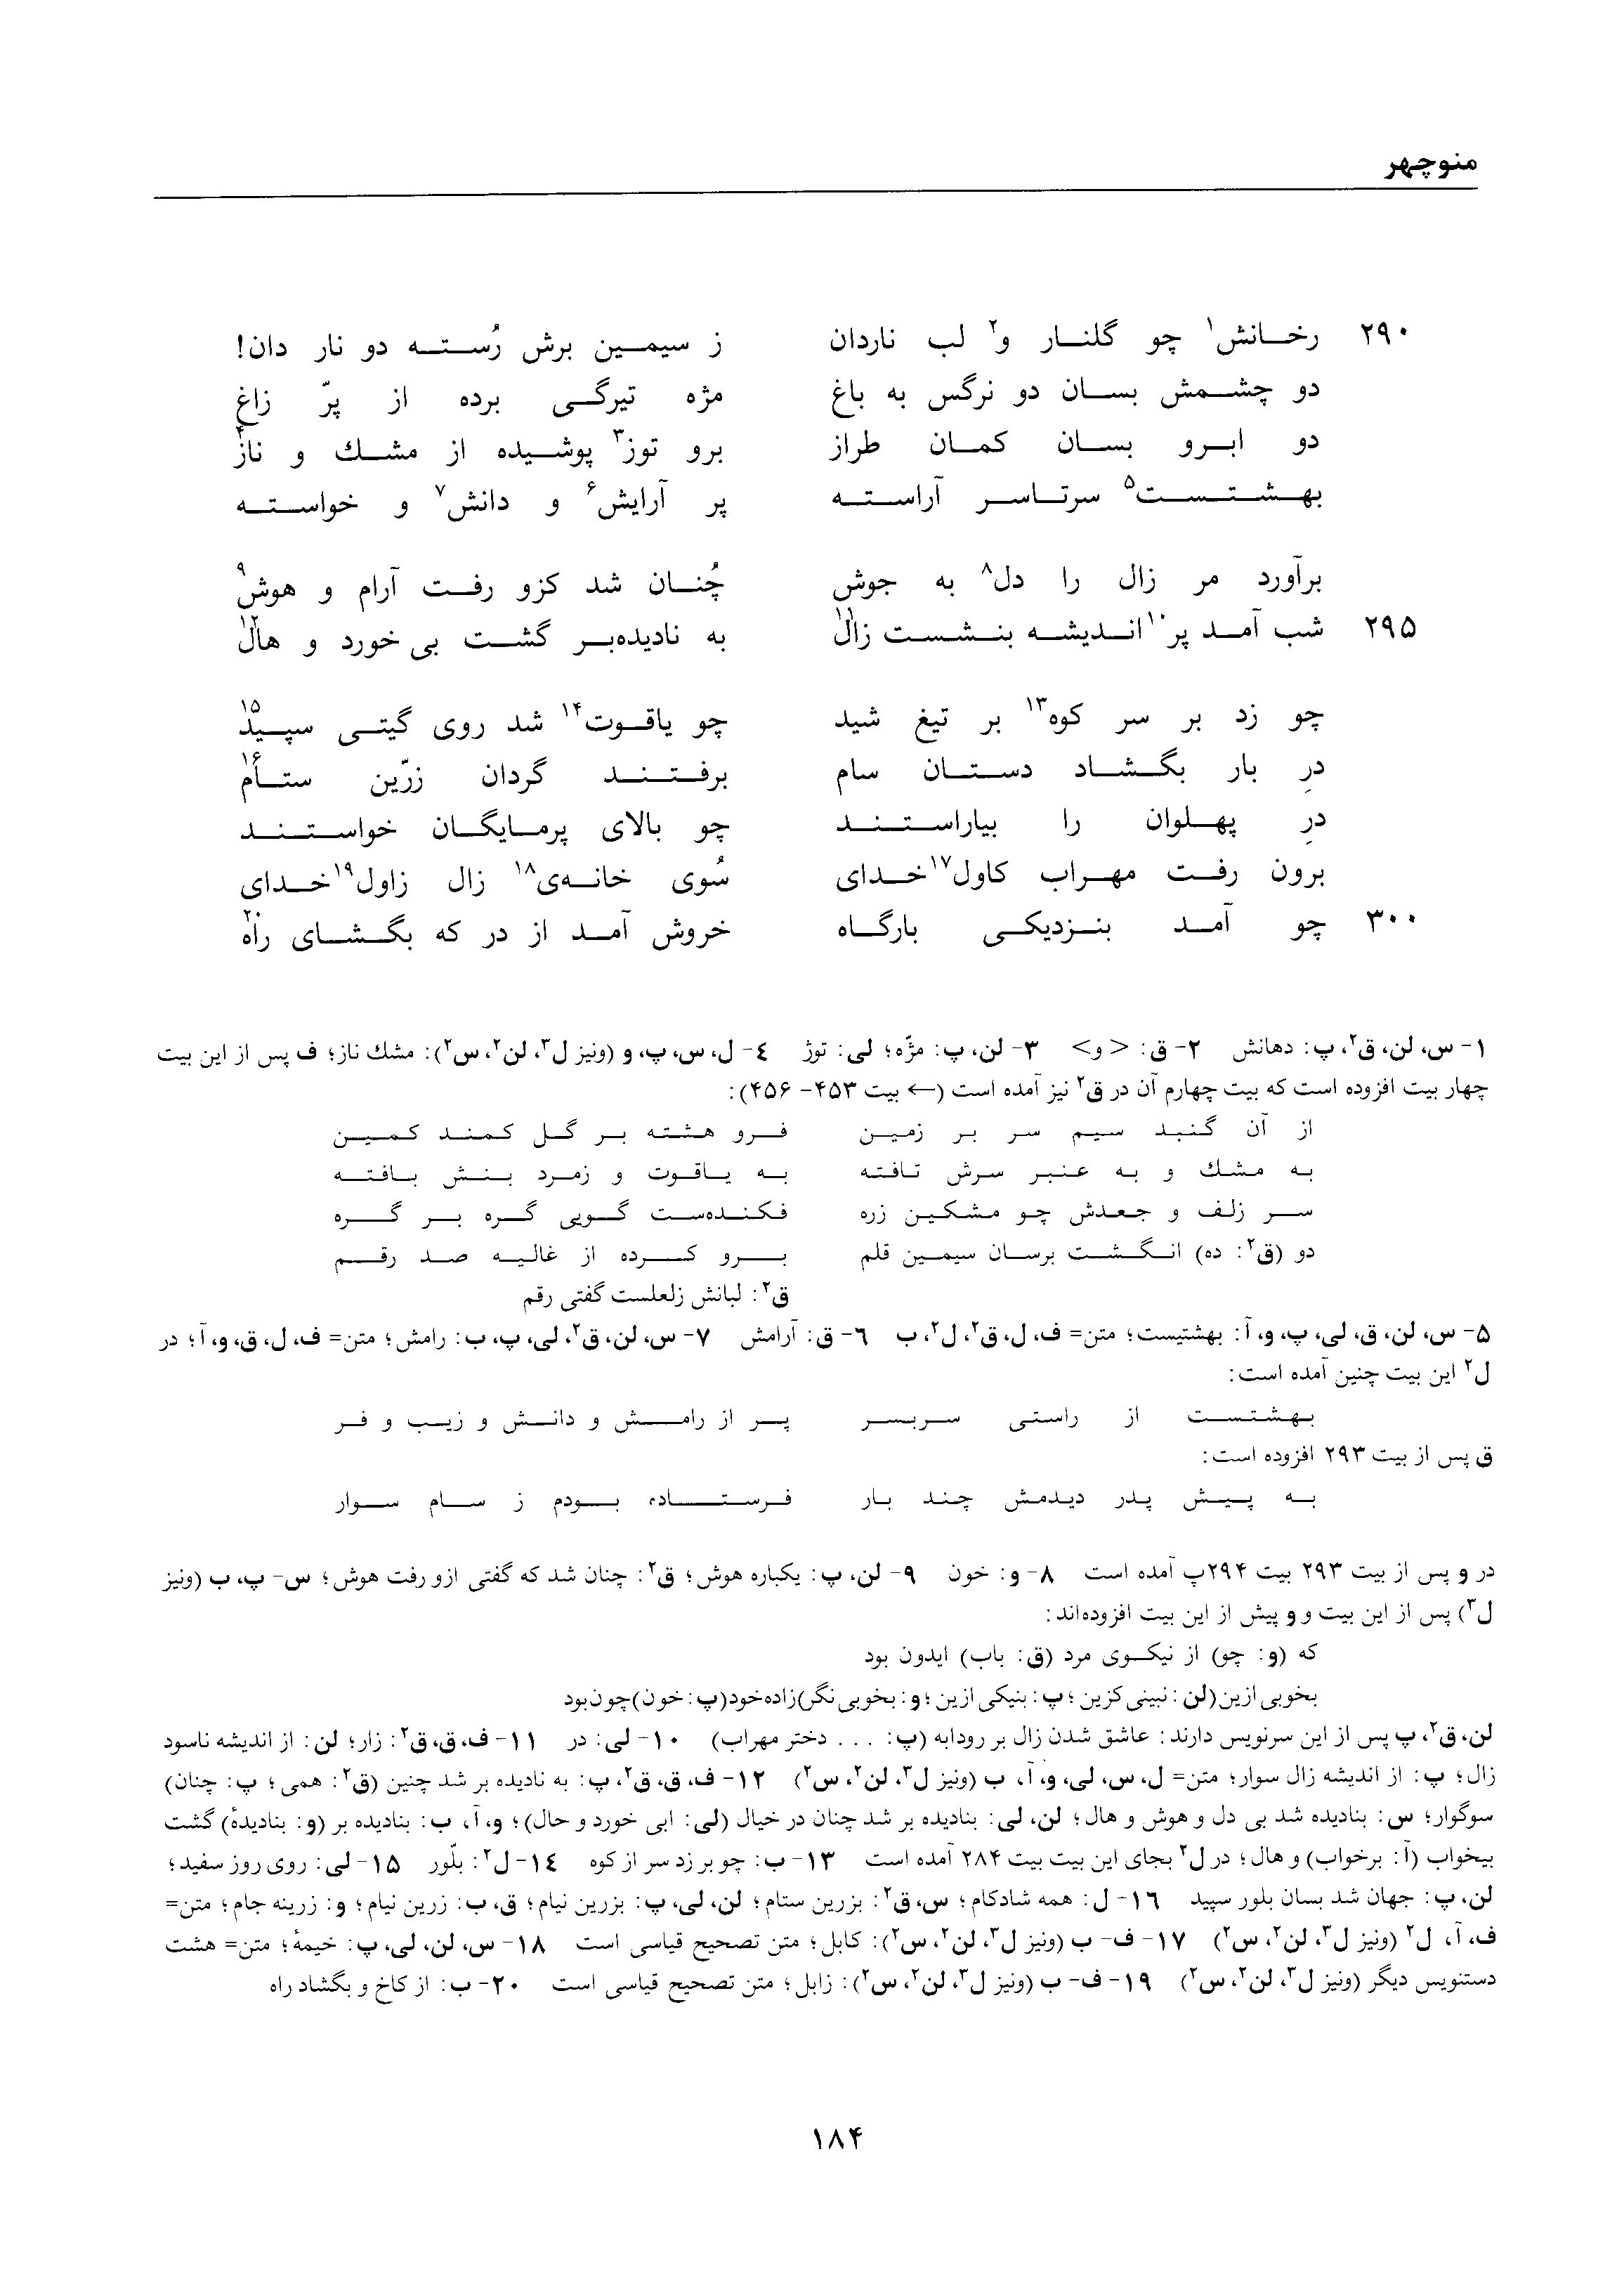 منوچهر
۲۹۰ رخانش۱ چو گلنار و۲ لب ناردان ز سیمین برش رُسته دو نار دان!
دو چشمش بسان دو نرگس به باغ مژه تیرگی برده از پرّ زاغ
دو ابرو بسان کمان طراز برو توز۳ پوشیده از مشك و ناز۴
بهشتست۵ سرتاسر آراسته پر آرایش۶ و دانش۷ و خواسته
برآورد مر زال را دل۸ به جوش چُنان شد کزو رفت آرام و هوش۹
۲۹۵ شب آمد پر۱۰ اندیشه بنشست زال۱۱ به نادیده‌بر گشت بی خورد و هال۱۲
چو زد بر سر کوه۱۳ بر تیغ شید چو یاقوت۱۴ شد روی گیتی سپید۱۵
درِ بار بگشاد دستان سام برفتند گردان زرّین ستام۱۶
درِ پهلوان را بیاراستند چو بالای پرمایگان خواستند
برون رفت مهراب کاول۱۷ خدای سُوی خانه‌ی۱۸ زال زاول۱۹ خدای
۳۰۰ چو آمد بنزدیکی بارگاه خروش آمد از در که بگشای راه۲۰
۱- س، لن، ق۲، پ: دهانش ۲- ق: <و> ۳- لن، پ: مژّه؛ لی: توژ ٤- ل، س، پ، و (ونیز ل۳، لن۲، س۲): مشك ناز؛ ف پس از این بیت
چهار بیت افزوده است که بیت چهارم آن در ق۲ نیز آمده است (← بیت ۴۵۳- ۴۵۶):
از آن گنبد سیم سر بر زمین فرو هشته بر گل کمند کمین
به مشك و به عنبر سرش تافته به یاقوت و زمرد بنش بافته
سر زلف و جعدش چو مشکین زره فکنده‌ست گویی گره بر گره
دو (ق۲: ده) انگشت برسان سیمین قلم برو کرده از غالیه صد رقم
ق۲: لبانش زلعلست گفتی رقم
۵- س، لن، ق، لی، پ، و، آ: بهشتیست؛ متن= ف، ل، ق۲، ل۲، ب ٦- ق: آرامش ۷- س، لن، ق۲، لی، پ، ب: رامش؛ متن= ف، ل، ق، و، آ؛ در
ل۲ این بیت چنین آمده است:
بهشتست از راستی سربسر پر از رامش و دانش و زیب و فر
ق پس از بیت ۲۹۳ افزوده است:
به پیش پدر دیدمش چند بار فرستاده بودم ز سام سوار
در و پس از بیت ۲۹۳ بیت ۲۹۴پ آمده است ۸- و: خون ۹- لن، پ: یکباره هوش؛ ق۲: چنان شد که گفتی ازو رفت هوش؛ س- پ، ب (ونیز
ل۳) پس از این بیت و و پیش از این بیت افزوده‌اند:
که (و: چو) از نیکوی مرد (ق: باب) ایدون بود
بخوبی ازین (لن: نبینی کزین؛ پ: بنیکی ازین؛ و: بخوبی نگر) زاده خود (پ: خون) چون بود
لن، ق۲، پ پس از این سرنویس دارند: عاشق شدن زال بر رودابه (پ: . . . دختر مهراب) ۱۰- لی: در ۱۱- ف، ق، ق۲: زار؛ لن: از اندیشه ناسود
زال؛ پ: از اندیشه زال سوار؛ متن= ل، س، لی، و، آ، ب (ونیز ل۳، لن۲، س۲) ۱۲- ف، ق، ق۲، پ: به نادیده بر شد چنین (ق۲: همی؛ پ: چنان)
سوگوار؛ س: بنادیده شد بی دل و هوش و هال؛ لن، لی: بنادیده بر شد چنان در خیال (لی: ابی خورد و حال)؛ و، آ، ب: بنادیده بر (و: بنادیدهٔ) گشت
بیخواب (آ: برخواب) و هال؛ در ل۲ بجای این بیت بیت ۲۸۴ آمده است ۱۳- ب: چو برزد سر از کوه ۱٤- ل۲: بلّور ۱۵- لی: روی روز سفید؛
لن، پ: جهان شد بسان بلور سپید ۱٦- ل: همه شادکام؛ س، ق۲: بزرین ستام؛ لن، لی، پ: بزرین نیام؛ ق، ب: زرین نیام؛ و: زرینه جام؛ متن=
ف، آ، ل۲ (ونیز ل۳، لن۲، س۲) ۱۷- ف- ب (ونیز ل۳، لن۲، س۲): کابل؛ متن تصحیح قیاسی است ۱۸- س، لن، لی، پ: خیمهٔ؛ متن= هشت
دستنویس دیگر (ونیز ل۳، لن۲، س۲) ۱۹- ف- ب (ونیز ل۳، لن۲، س۲): زابل؛ متن تصحیح قیاسی است ۲۰- ب: از کاخ و بگشاد راه
۱۸۴